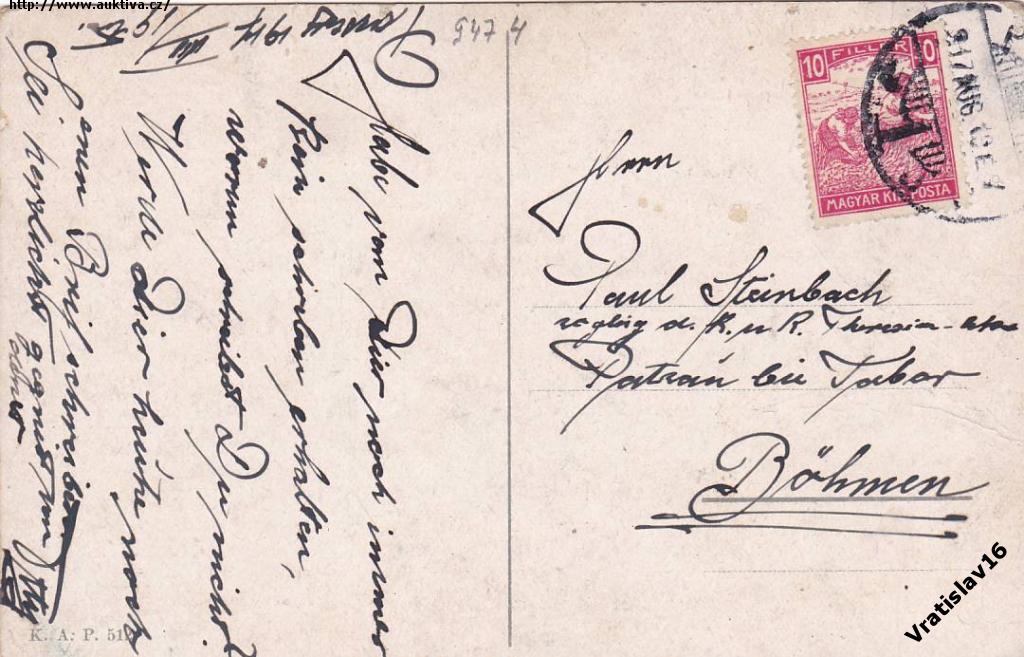 http://www.auktiva.cz/
947 4
1917
Habe von Dier noch immer
Kein schreiben erhalten,
warum schreibst Du nicht?
Werde Dier heute noch
einen Brief schreiben
Sei herzlichst gegrüst von
Otty
10 FILLÉR 10
MAGYAR KIR. POSTA
917 AUG
Herrn
Paul Steinbach
d. K. u K. Theresia
Patzau bei Tabor
Böhmen
K. A. P. 512
Vratislav16